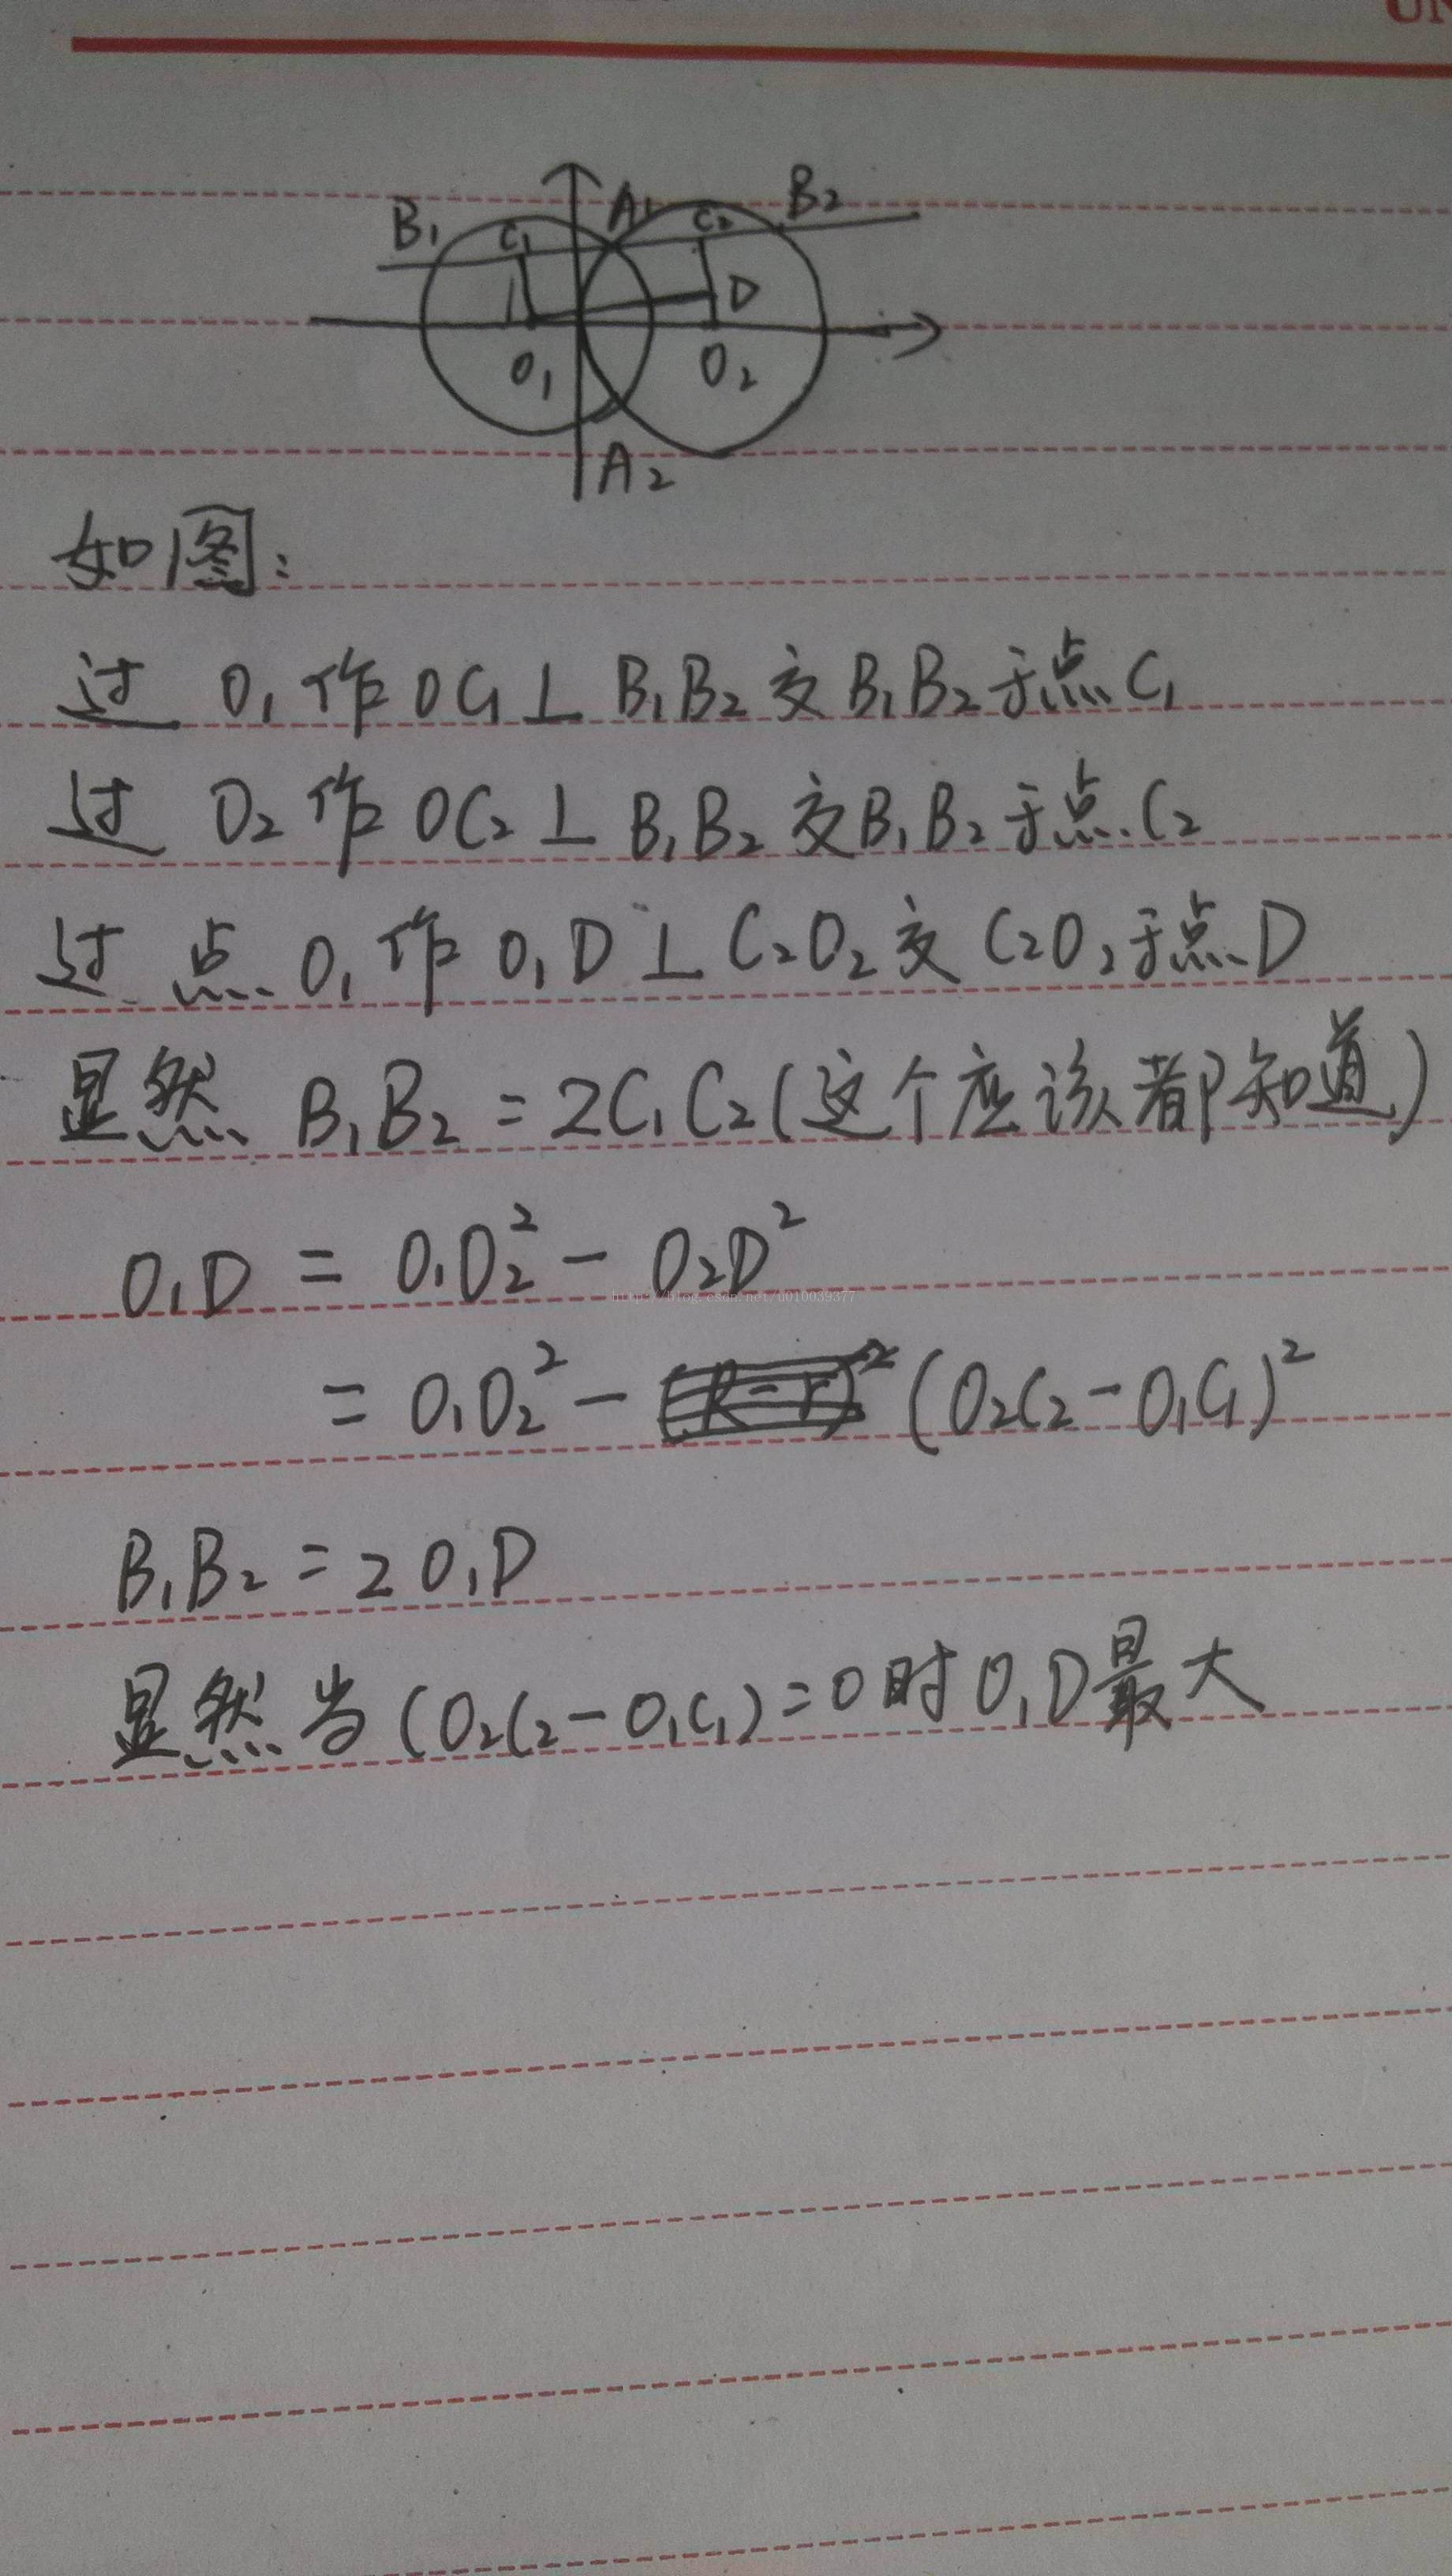 UN
B₁ C₁ A₁ C₂ B₂
D
O₁ O₂
A₂
如图:
过 O₁作OC₁⊥B₁B₂交B₁B₂于点C₁
过 O₂作OC₂⊥B₁B₂交B₁B₂于点C₂
过点O₁作O₁D⊥C₂O₂交C₂O₂于点D
显然 B₁B₂=2C₁C₂(这个应该都知道)
O₁D = O₁O₂² - O₂D²
http://blog.csdn.net/u010039377
= O₁O₂² - (O₂C₂-O₁C₁)²
B₁B₂=2O₁D
显然当(O₂C₂-O₁C₁)=0时O₁D最大